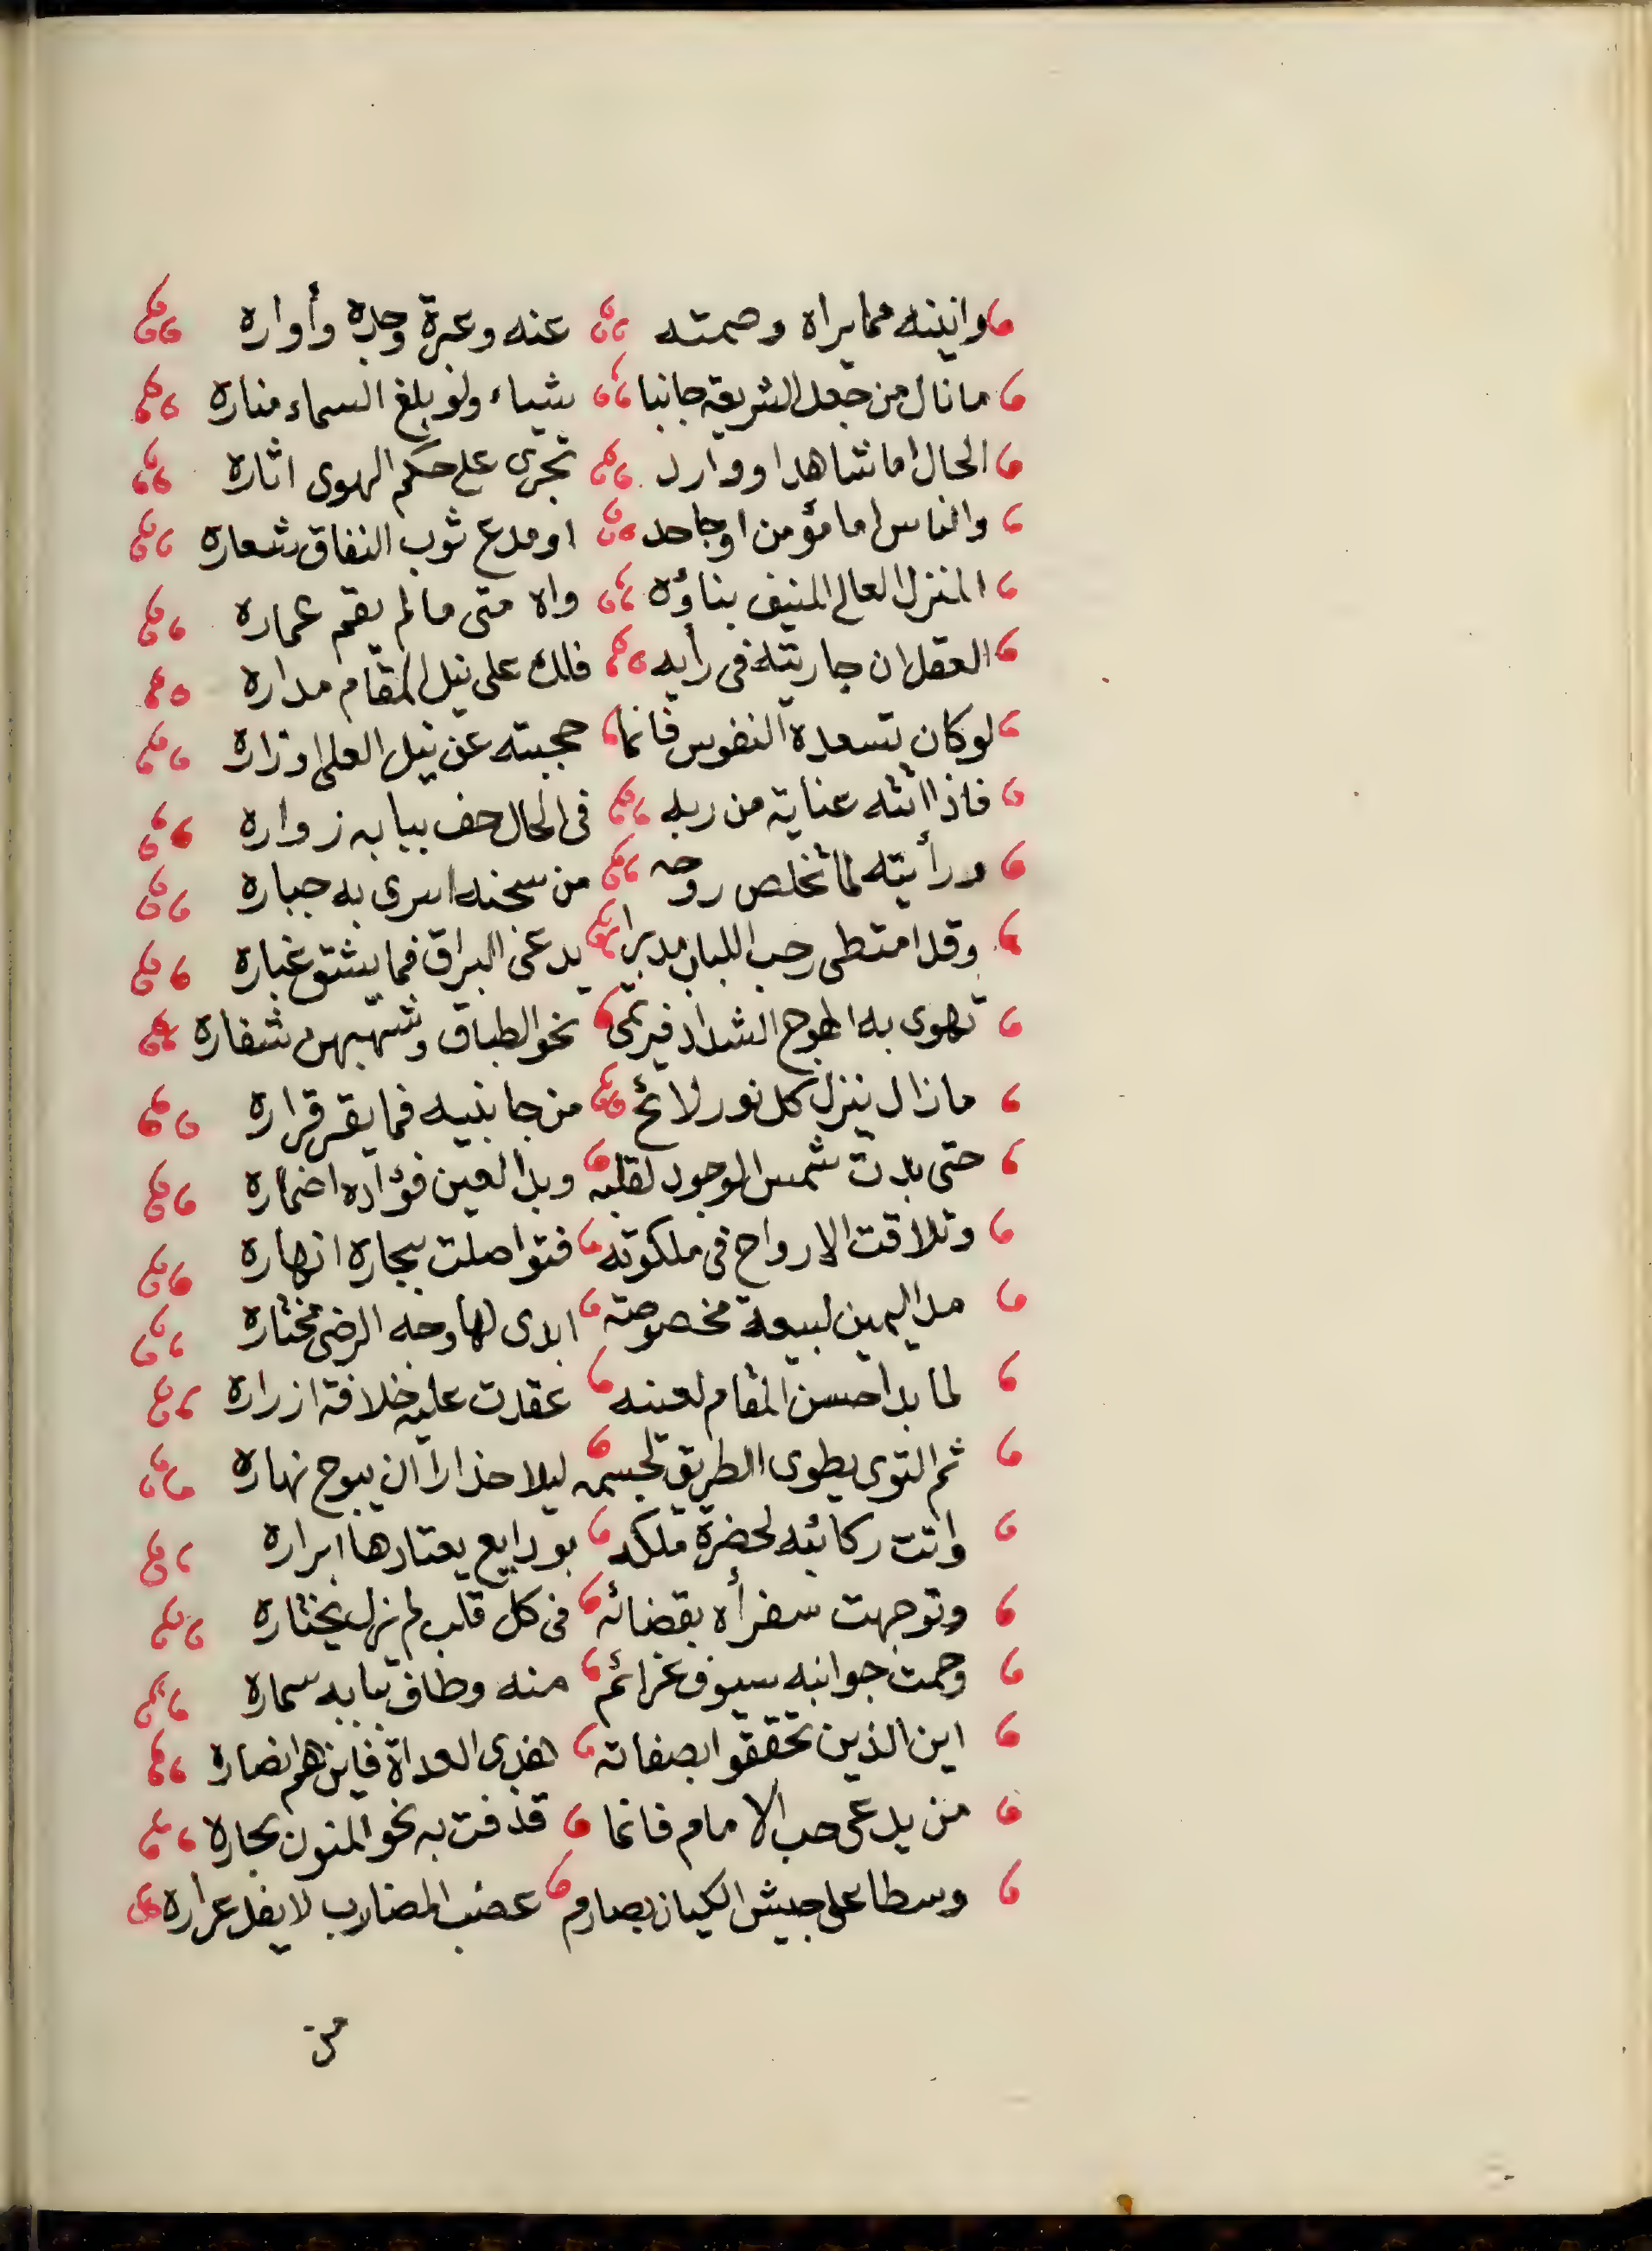 وانينه مما يراه وصمته عنه وعبرة وجده وأواره
ما نال من جعل الشريعة جانبا شيئا ولو بلغ السماء مناره
الحال اما شاهد او وارد تجرى على حكم الهوى اثاره
والناس اما مؤمن او جاحد او مدع ثوب النفاق شعاره
المنزل العالى المنيف بناؤه واه متى ما لم يقم عماره
العقل ان جاريته فى رأيه فلك على نيل المقام مداره
لو كان تسعده النفوس فانما حجبته عن نيل العلى اوزاره
فاذا اتته عناية من ربه فى الحال حف ببابه زواره
ورأيته لما تخلص روحه من سجنه اسرى به جباره
وقد امتطى رحب اللبان مدبرا يدعى البراق فما يشق غباره
تهوى به الهوج الشداد فيرتمى نحو الطباق وشهبهن شفاره
ما زال ينزل كل نور لائح من جانبيه فما يقر قراره
حتى بدت شمس الوجود لقلبه وبدا لعين فؤاده اضماره
وتلاقت الارواح فى ملكوته فتواصلت ببحاره انهاره
مد اليمين لبيعة مخصوصة ابدى لها وجه الرضى مختاره
لما بدا حسن المقام لعينه عقدت عليه خلافة ازراره
ثم التوى يطوى الطريق لجسمه ليلا حذارا ان يبوح نهاره
واتت ركائبه لحضرة ملكه بودايع يعتادها ابراره
وتوجهت سفرأه بقضائه فى كل قلب لم يزل يختاره
وحمت جوانبه سيوف عزائم منه وطاف ببابه سماره
اين الذين تحققوا بصفاته هذى العداة فاين هم انصاره
من يدعى حب الامام فانما قذفت به نحو المنون بحاره
وسطا على جيش الكيان بصارم عضب المضارب لا يفل عراره